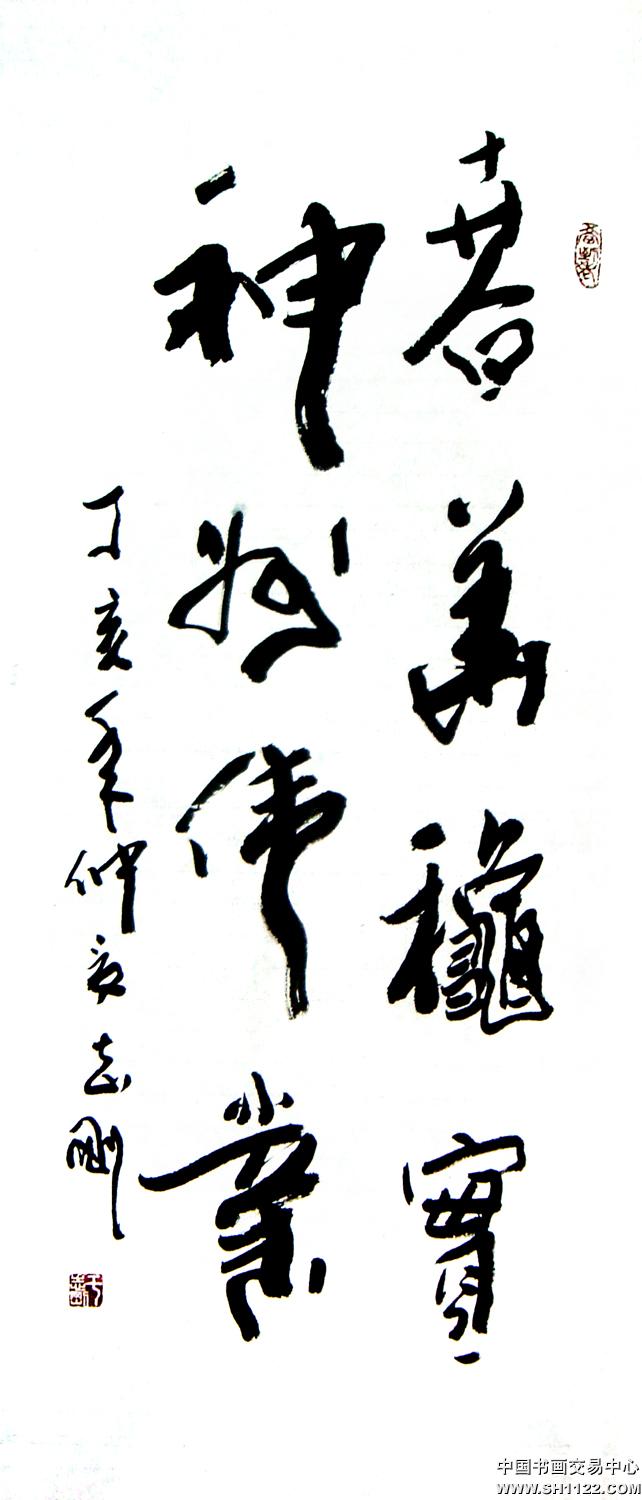 春華龝實
神州偉業
丁亥年仲夏志剛
中国书画交易中心
www.SH1122.com